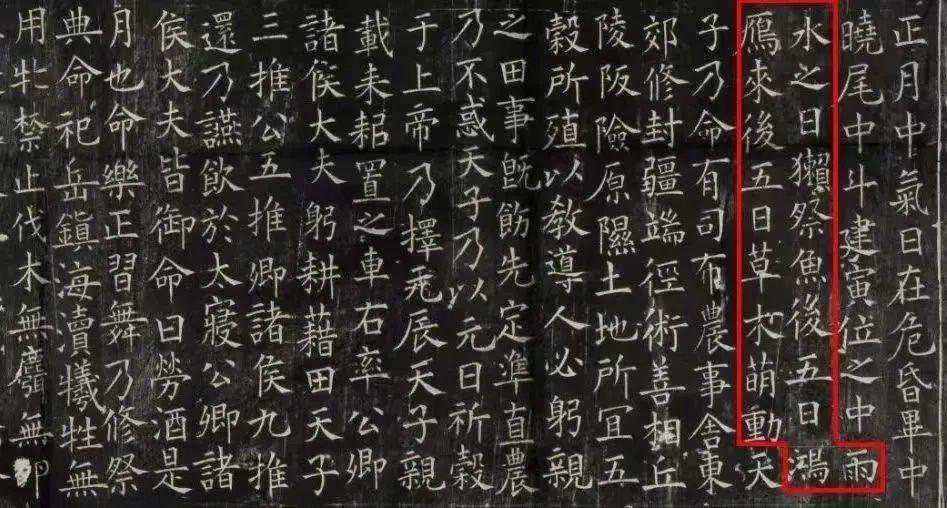 正月中氣日在危昏畢中
曉尾中斗建寅位之中雨
水之日獺祭魚後五日鴻
鴈來後五日草木萌動天
子乃命有司布農事舍東
郊修封疆端徑術善相丘
陵阪險原隰土地所冝五
穀所殖以教導人必躬親
之田事既飭先定準直農
乃不惑天子乃以元日祈穀
于上帝乃擇元辰天子親
載耒耜置之車右率公卿
諸侯大夫躬耕藉田天子
三推公五推卿諸侯九推
還乃讌飲於太寢公卿諸
侯大夫皆御命曰勞酒是
月也命樂正習舞乃修祭
典命祀岳鎮海瀆犧牲無
用牝禁止伐木無麛無